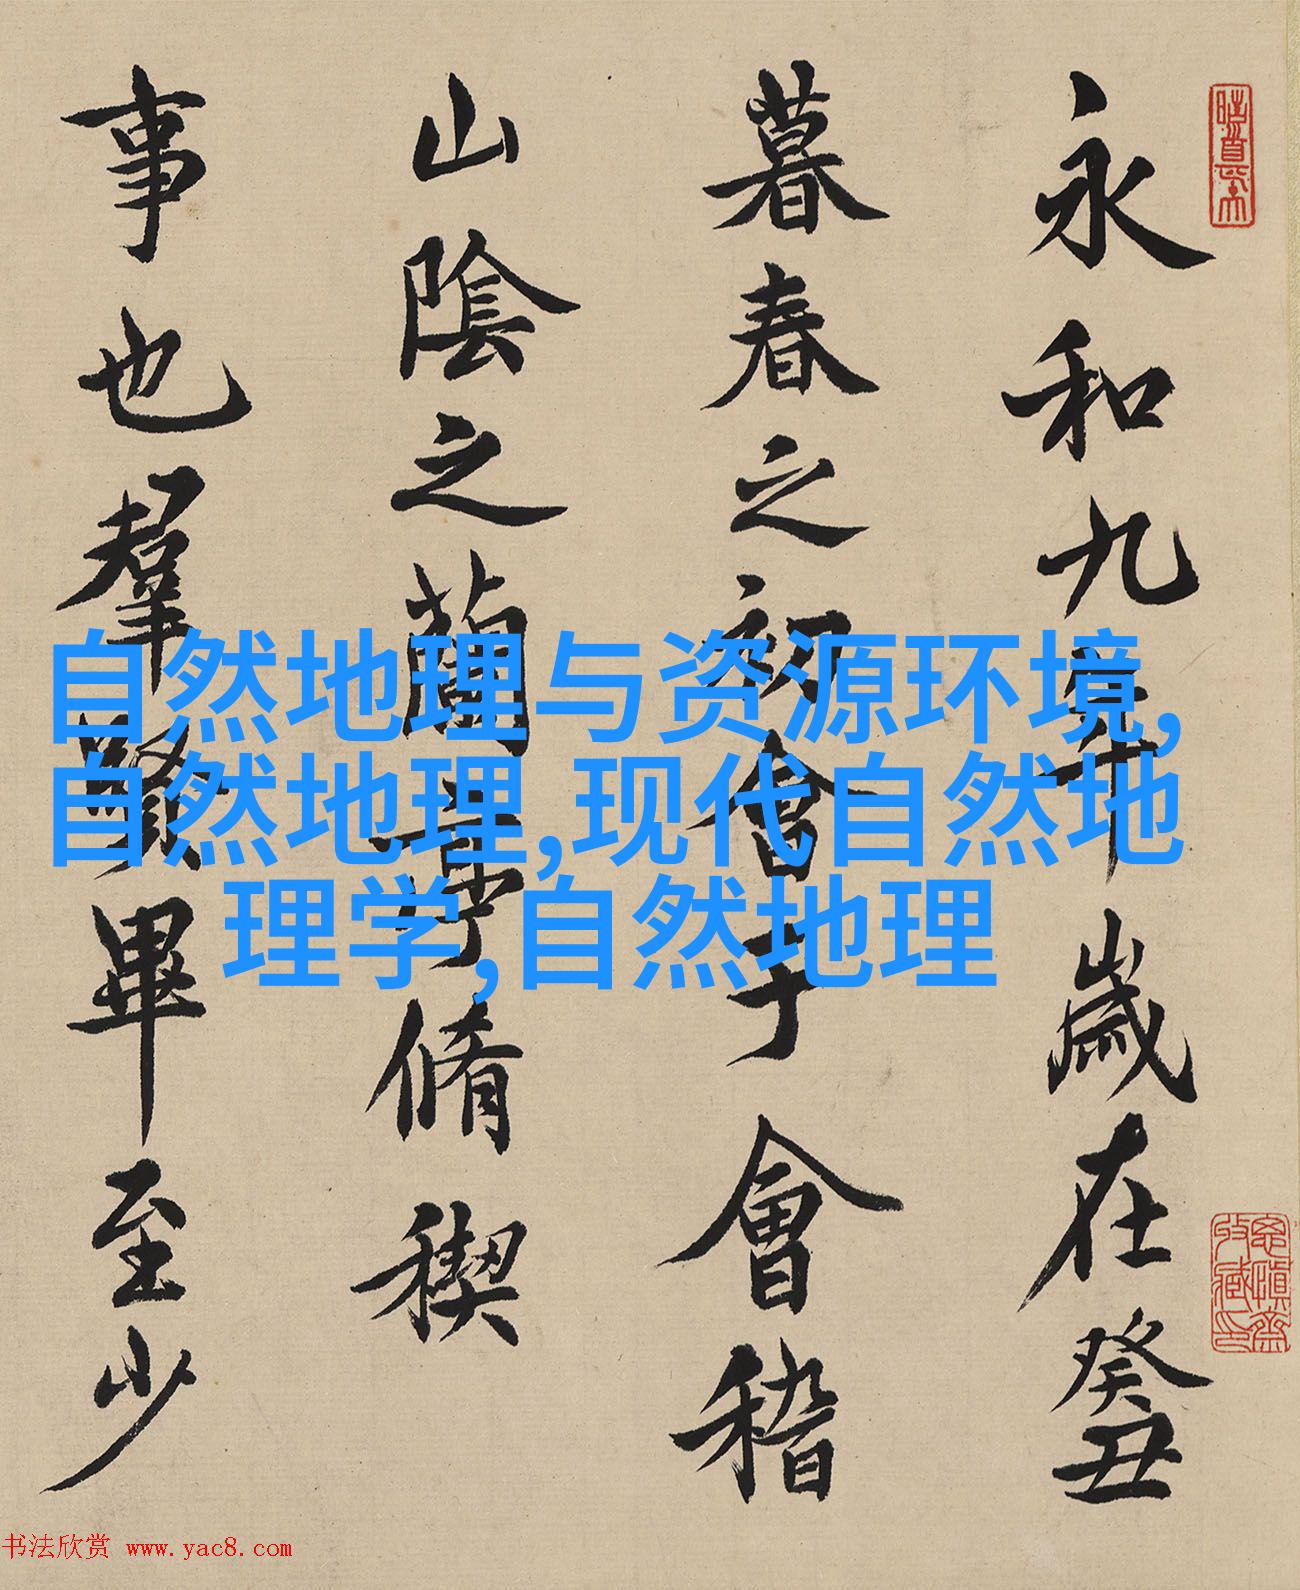 永和九年歲在癸丑
暮春之初會于會稽
山陰之蘭亭脩稧
事也羣賢畢至少
自然地理与资源环境,
自然地理,现代自然地
理学,自然地理
书法欣赏 www.yac8.com